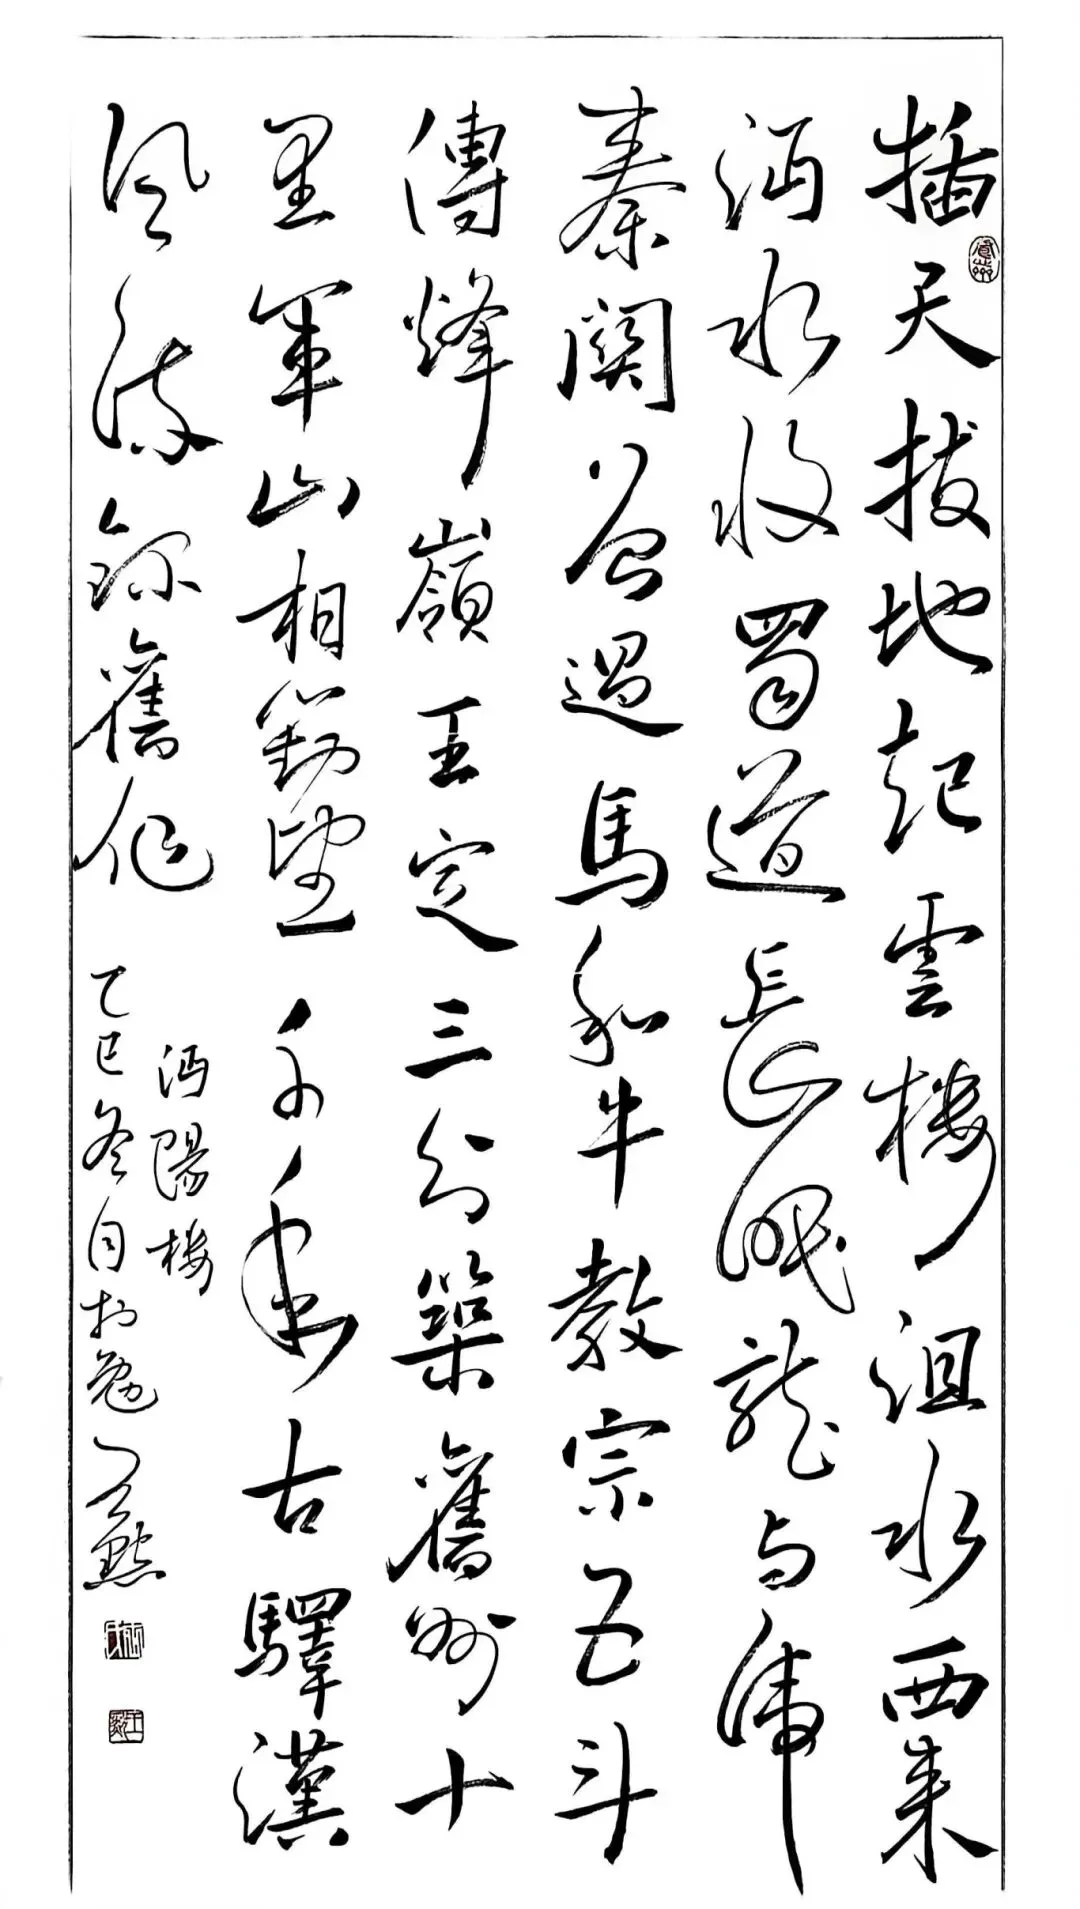 插天拔地起雲樓沮水西來
沔水收蜀道長眠龍與虎
秦關曾過馬和牛教宗五斗
傳烽嶺王定三分築舊州十
里軍山相對望千年古驛漢
風流錄舊作
沔陽樓
乙巳冬月於勉